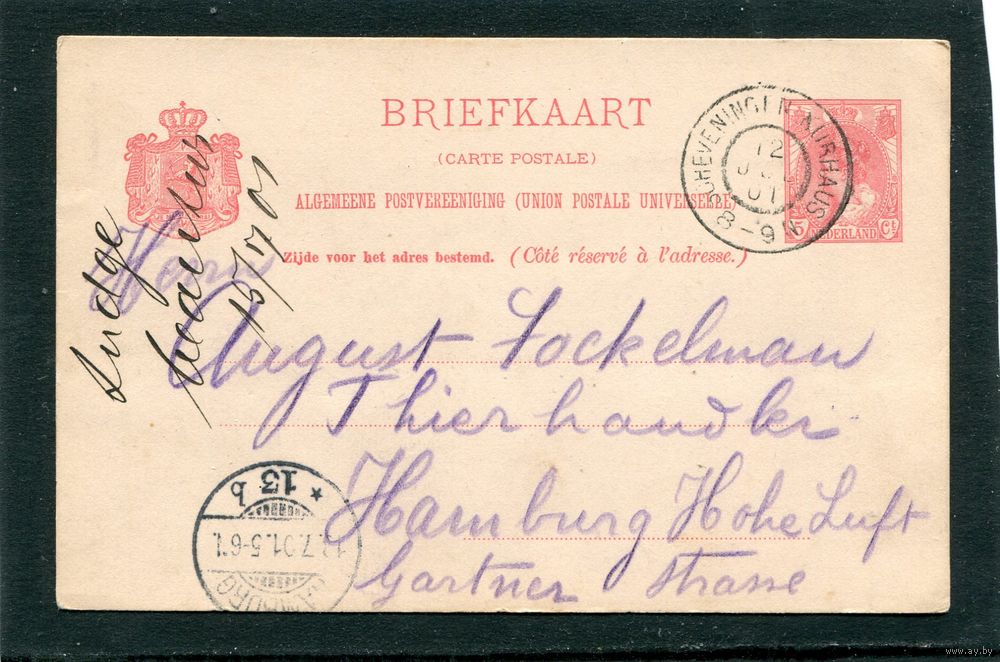 BRIEFKAART
(CARTE POSTALE)
ALGEMEENE POSTVEREENIGING (UNION POSTALE UNIVERSELLE)
Zijde voor het adres bestemd. (Côté réservé à l'adresse.)
SCHEVENINGEN-KURHAUS
12
01
8-9N
5 NEDERLAND Ct
Herrn
August Fockelman
Thierhandler
Hamburg Hohe Luft
Gartner Strasse
15/7 01
* 13 b
.7.01.5-6
HAMBURG
www.ay.by